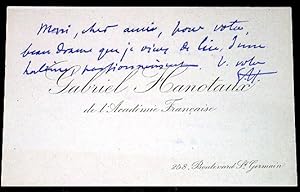 Merci, cher ami, pour votre
beau drame que je viens de lire, d'une
haleine, passionnément V. votre
GH
Gabriel Hanotaux
de l'Académie Française
258, Boulevard St Germain